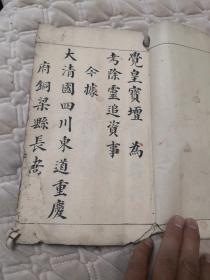 覺皇寶壇 為
考除靈追資事
今據
大清國四川東道重慶
府銅梁縣長安